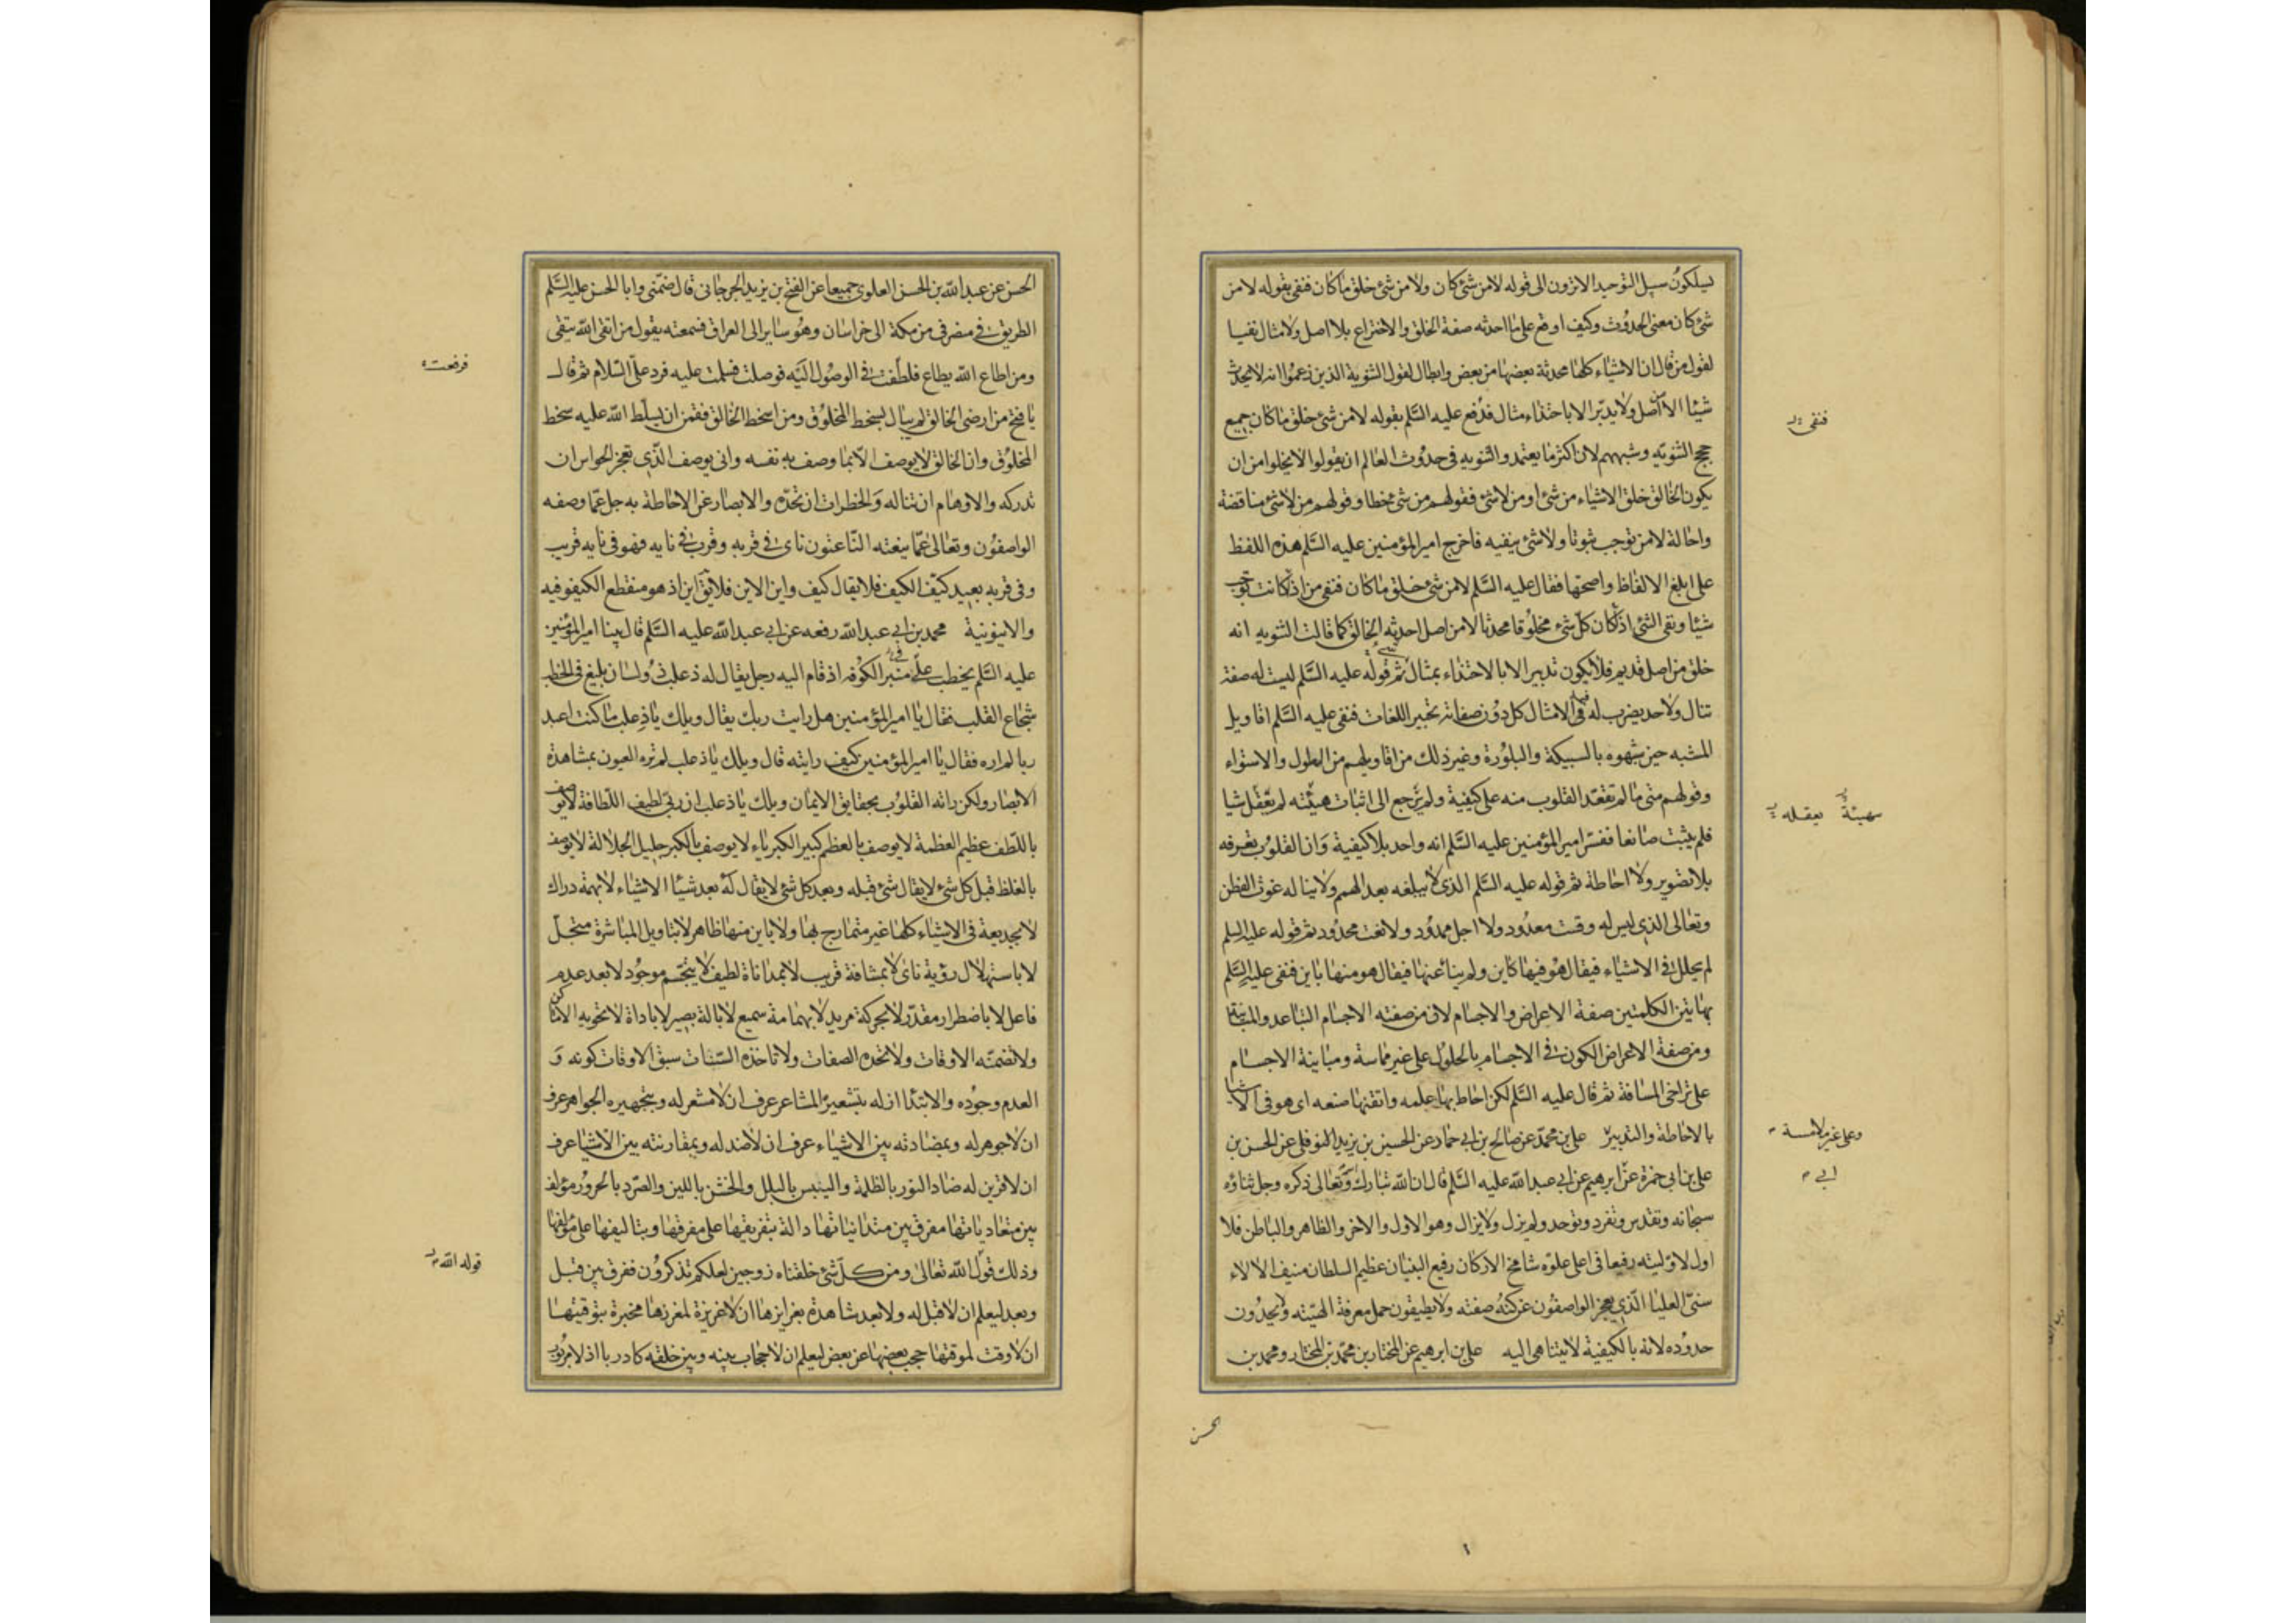 يسلكون سبيل التوحيد الا ترون الى قوله لا من شئ كان ولا من شئ خلق ما كان فنفى بقوله لا من
شئ كان معنى الحدوث وكيف اوقع على ما احدثه صفة الخلق والاختراع بلا اصل ولا مثال نفيا
لقول من قال ان الاشياء كلها محدثة بعضها من بعض وابطال لقول الثنوية الذين زعموا انه لا يحدث
شيئا الا من اصل ولا يدبر الا باحتذاء مثال فدفع عليه السلم بقوله لا من شئ خلق ما كان جميع
حجج الثنويه وشبههم لان اكثر ما يعتمد الثنويه فى حدوث العالم ان يقولوا لا يخلوا من ان
يكون الخالق خلق الاشياء من شئ او من لا شئ فقولهم من شئ خطا وقولهم من لا شئ مناقضة
واحالة لان من توجب شوتا ولا شئ ينفيه فاخرج امير المؤمنين عليه السلم هذه اللفظ
على ابلغ الالفاظ واصحها فقال عليه السلم لا من شئ خلق ما كان فنفى من اذ كانت توجب
شيئا ونفى الشئ اذ كان كل شئ مخلوقا محدثا لا من اصل احدثه الخالق كما قالت الثنويه انه
خلق من اصل قديم فلا يكون تدبير الا بالاحتذاء بمثال ثم قوله عليه السلم ليست له صفة
تنال ولا حد يضرب له فيه الامثال كل دون صفاته تحبير اللغات فنفى عليه السلم اقاويل
المشبه حين شبهوه بالسبيكة والبلورة وغير ذلك من اقاويلهم من الطول والاستواء
وقولهم متى ما لم تعقد القلوب منه على كيفية ولم ترجع الى اثبات هيئته لم تعقل شيا
فلم يثبت صانعا ففسر امير المؤمنين عليه السلم انه واحد بلا كيفية وان القلوب تعرفه
بلا تصوير ولا احاطة ثم قوله عليه السلم الذى لا يبلغه بعد الهمم ولا يناله غوص الفطن
وتعالى الذى ليس له وقت معدود ولا اجل ممدود ولا نعت محدود ثم قوله عليه السلم
لم يحلل فى الاشياء فيقال هو فيها كاين ولم ينأ عنها فيقال هو منها باين فنفى عليه السلم
بهاتين الكلمتين صفة الاعراض والاجسام لان من صفته الاجسام التباعد والمباينة
ومن صفة الاعراض الكون فى الاجسام بالحلول على غير مماسة ومباينة الاجسام
على تراخى المسافة ثم قال عليه السلم لكن احاط بها علمه واتقنها صنعه اى هو فى الاشيا
بالاحاطة والتدبير علي بن محمد عن صالح بن ابي حماد عن الحسين بن يزيد النوفلى عن الحسن بن
على بن ابي حمزة عن ابرهيم عن ابي عبد الله عليه السلم قال ان الله تبارك وتعالى ذكره وجل ثناؤه
سبحانه وتقدس وتفرد وتوحد ولم يزل ولا يزال وهو الاول والاخر والظاهر والباطن فلا
اول لاوليته رفيعا فى اعلى علوه شامخ الاركان رفيع البنيان عظيم السلطان منيف الالاء
سنى العليا الذى يعجز الواصفون عن كنه صفته ولا يطيقون حمل معرفة الهيته ولا يحدون
حدوده لانه بالكيفية لا يتناهى اليه على بن ابرهيم عن المختار بن محمد بن المختار ومحمد بن
فنفى
بهيئة يعقله
وعلى غير ملامسة
ابي
الحسن
الحسن عن عبد الله بن الحسن العلوى جميعا عن الفتح بن يزيد الجرجانى قال ضمنى وابا الحسن عليه السلم
الطريق فى منصرفى من مكة الى خراسان وهو ساير الى العراق فسمعته يقول من اتقى الله يتقى
ومن اطاع الله يطاع فلطفت فى الوصول اليه فوصلت فسلمت عليه فرد على السلام ثم قال
يا فتح من ارضى الخالق لم يبال بسخط المخلوق ومن اسخط الخالق فقمن ان يسلط الله عليه سخط
المخلوق وان الخالق لا يوصف الا بما وصف به نفسه وانى يوصف الذى تعجز الحواس ان
تدركه والاوهام ان تناله والخطرات ان تحده والابصار عن الاحاطة به جل عما وصفه
الواصفون وتعالى عما ينعته الناعتون ناى فى قربه وقرب فى نايه فهو فى نايه قريب
وفى قربه بعيد كيف الكيف فلا يقال كيف واين الاين فلا يق اين اذ هو منقطع الكيفوفيه
والاينونية محمد بن ابي عبد الله رفعه عن ابي عبد الله عليه السلم قال بينا امير المؤمنين
عليه السلم يخطب على منبر الكوفه اذ قام اليه رجل يقال له ذعلب ذو لسان بليغ فى الخطب
شجاع القلب فقال يا امير المؤمنين هل رايت ربك يقال ويلك يا ذعلب ما كنت اعبد
ربا لم اره فقال يا امير المؤمنين كيف رايته قال ويلك يا ذعلب لم تره العيون بمشاهدة
الابصار ولكن راته القلوب بحقايق الايمان ويلك يا ذعلب ان ربى لطيف اللطافة لا يوصف
باللطف عظيم العظمة لا يوصف بالعظم كبير الكبرياء لا يوصف بالكبر جليل الجلالة لا يوصف
بالغلظ قبل كل شئ لا يقال شئ قبله وبعد كل شئ لا يقال له بعد شيئا الاشياء لا بهمة دراك
لا بخديعة فى الاشياء كلها غير متمازج بها ولا باين منها ظاهر لا بتاويل المباشرة متجل
لا باستهلال رؤية ناى لا بمسافة قريب لا بمداناة لطيف لا يتجسم موجود لا بعد عدم
فاعل لا باضطرار مقدر لا بحركة مريد لا بهمامة سميع لا بالة بصير لا باداة لا تحويه الاماكن
ولا تضمنه الاوقات ولا تحده الصفات ولا تاخذه السنات سبق الاوقات كونه و
العدم وجوده والابتدا ازله بتشعيره المشاعر عرف ان لا مشعر له وبتجهيره الجواهر عرف
ان لا جوهر له وبمضادته بين الاشياء عرف ان لا ضد له وبمقارنته بين الاشيا عرف
ان لا قرين له ضاد النور بالظلمة واليبس بالبلل والخشن باللين والصرد بالحرور مؤلف
بين متعادياتها مفرق بين متدانياتها دالة بتفريقها على مفرقها وبتاليفها على مؤلفها
وذلك قول الله تعالى ومن كل شئ خلقناه زوجين لعلكم تذكرون ففرق بين قبل
وبعد ليعلم ان لا قبل له ولا بعد شاهدة بغرايزها ان لا غريزة لمغرزها مخبرة بتوقيتها
ان لا وقت لموقتها حجب بعضها عن بعض ليعلم ان لا حجاب بينه وبين خلقه كان ربا اذ لا مربوب
فرفعت
قوله الله